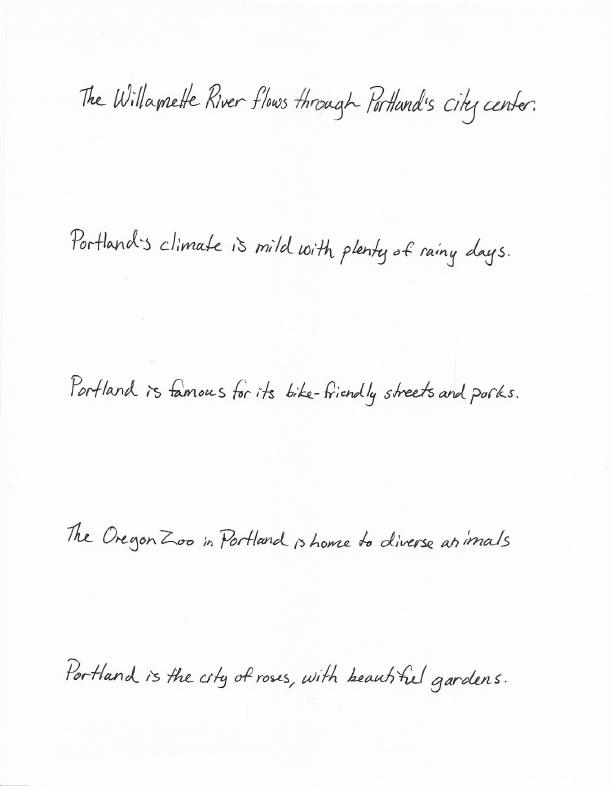 The Willamette River flows through Portland's city center.
Portland's climate is mild with plenty of rainy days.
Portland is famous for its bike-friendly streets and parks.
The Oregon Zoo in Portland is home to diverse animals
Portland is the city of roses, with beautiful gardens.